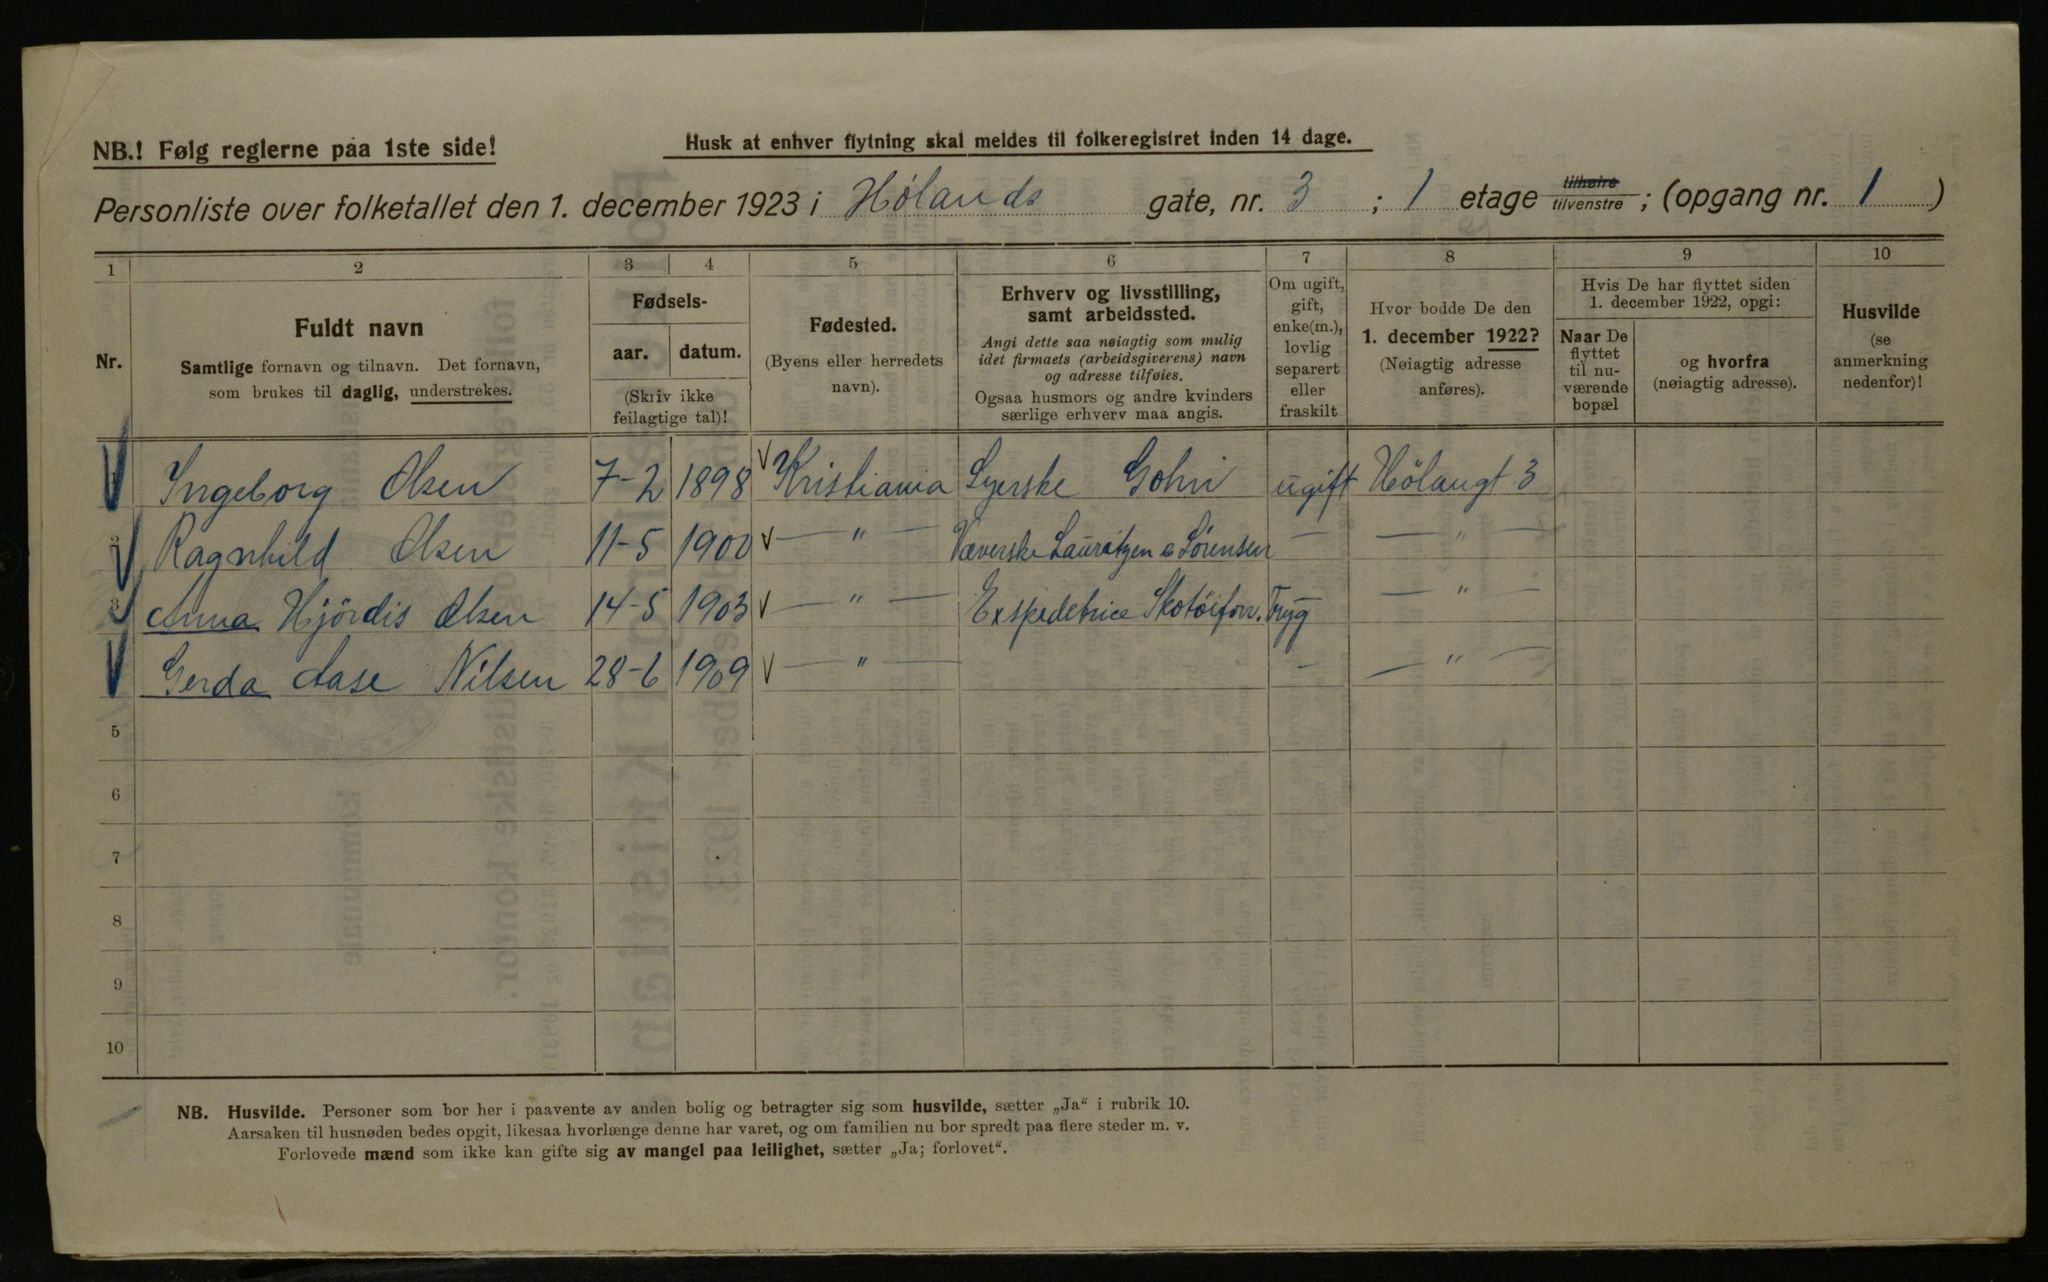 NB.! Følg reglerne paa 1ste side!
Husk at enhver flytning skal meldes til folkeregistret inden 14 dage.
Personliste over folketallet den 1. december 1923 i Hølands gate, nr. 3 ; 1 etage tilhøire tilvenstre ; (opgang nr. 1 )
1 2 3 4 5 6 7 8 9 10
Nr.
Fuldt navn
Samtlige fornavn og tilnavn. Det fornavn,
som brukes til daglig, understrekes.
Fødsels-
aar. datum.
(Skriv ikke
feilagtige tal)!
Fødested.
(Byens eller herredets
navn).
Erhverv og livsstilling,
samt arbeidssted.
Angi dette saa nøiagtig som mulig
idet firmaets (arbeidsgiverens) navn
og adresse tilføies.
Ogsaa husmors og andre kvinders
særlige erhverv maa angis.
Om ugift,
gift,
enke(m.),
lovlig
separert
eller
fraskilt
Hvor bodde De den
1. december 1922?
(Nøiagtig adresse
anføres).
Hvis De har flyttet siden
1. december 1922, opgi:
Naar De
flyttet
til nu-
værende
bopæl
og hvorfra
(nøiagtig adresse).
Husvilde
(se
anmerkning
nedenfor)!
Ingeborg Olsen 7-2 1898 Kristiania Syerske Gohn ugift Hölangt 3
2 Ragnhild Olsen 11-5 1900 — " — Væverske Lauritzen & Sørensen — — " —
3 Anna Hjördis Olsen 14-5 1903 — " — Expedetrice Skotöiforr. Tryg — — " —
Gerda Aase Nilsen 28-6 1909 — " — — — " —
5
6
7
8
9
10
NB. Husvilde. Personer som bor her i paavente av anden bolig og betragter sig som husvilde, sætter „Ja“ i rubrik 10.
Aarsaken til husnøden bedes opgit, likesaa hvorlænge denne har varet, og om familien nu bor spredt paa flere steder m. v.
Forlovede mænd som ikke kan gifte sig av mangel paa leilighet, sætter „Ja; forlovet“.